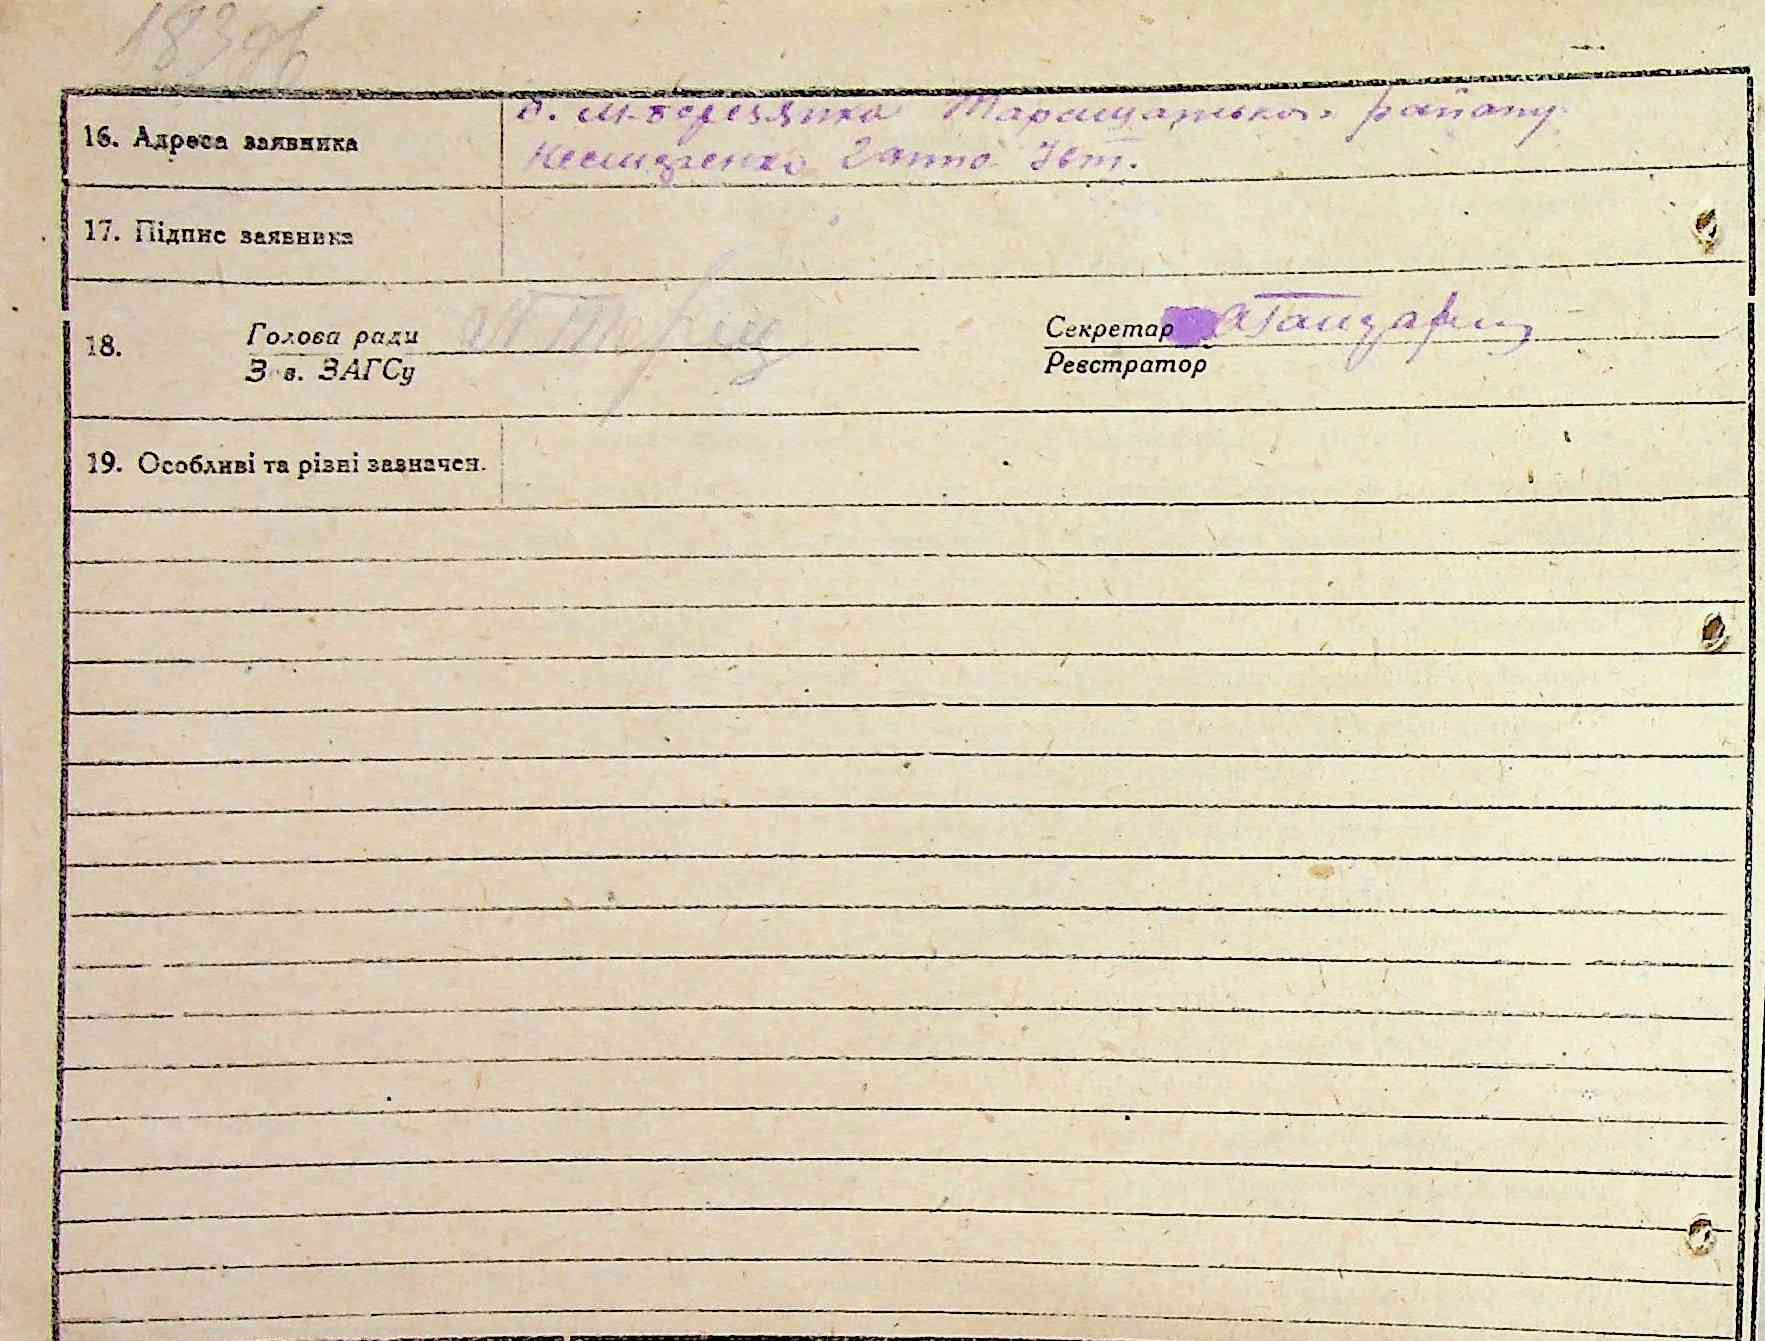 183зв
16. Адреса заявника
с. М-Березянка Таращанського району
Гапна Євт.
17. Підпис заявника
18.
Голова ради
Зав. ЗАГСу
Секретар
Реєстратор
19. Особливі та різні зазначен.